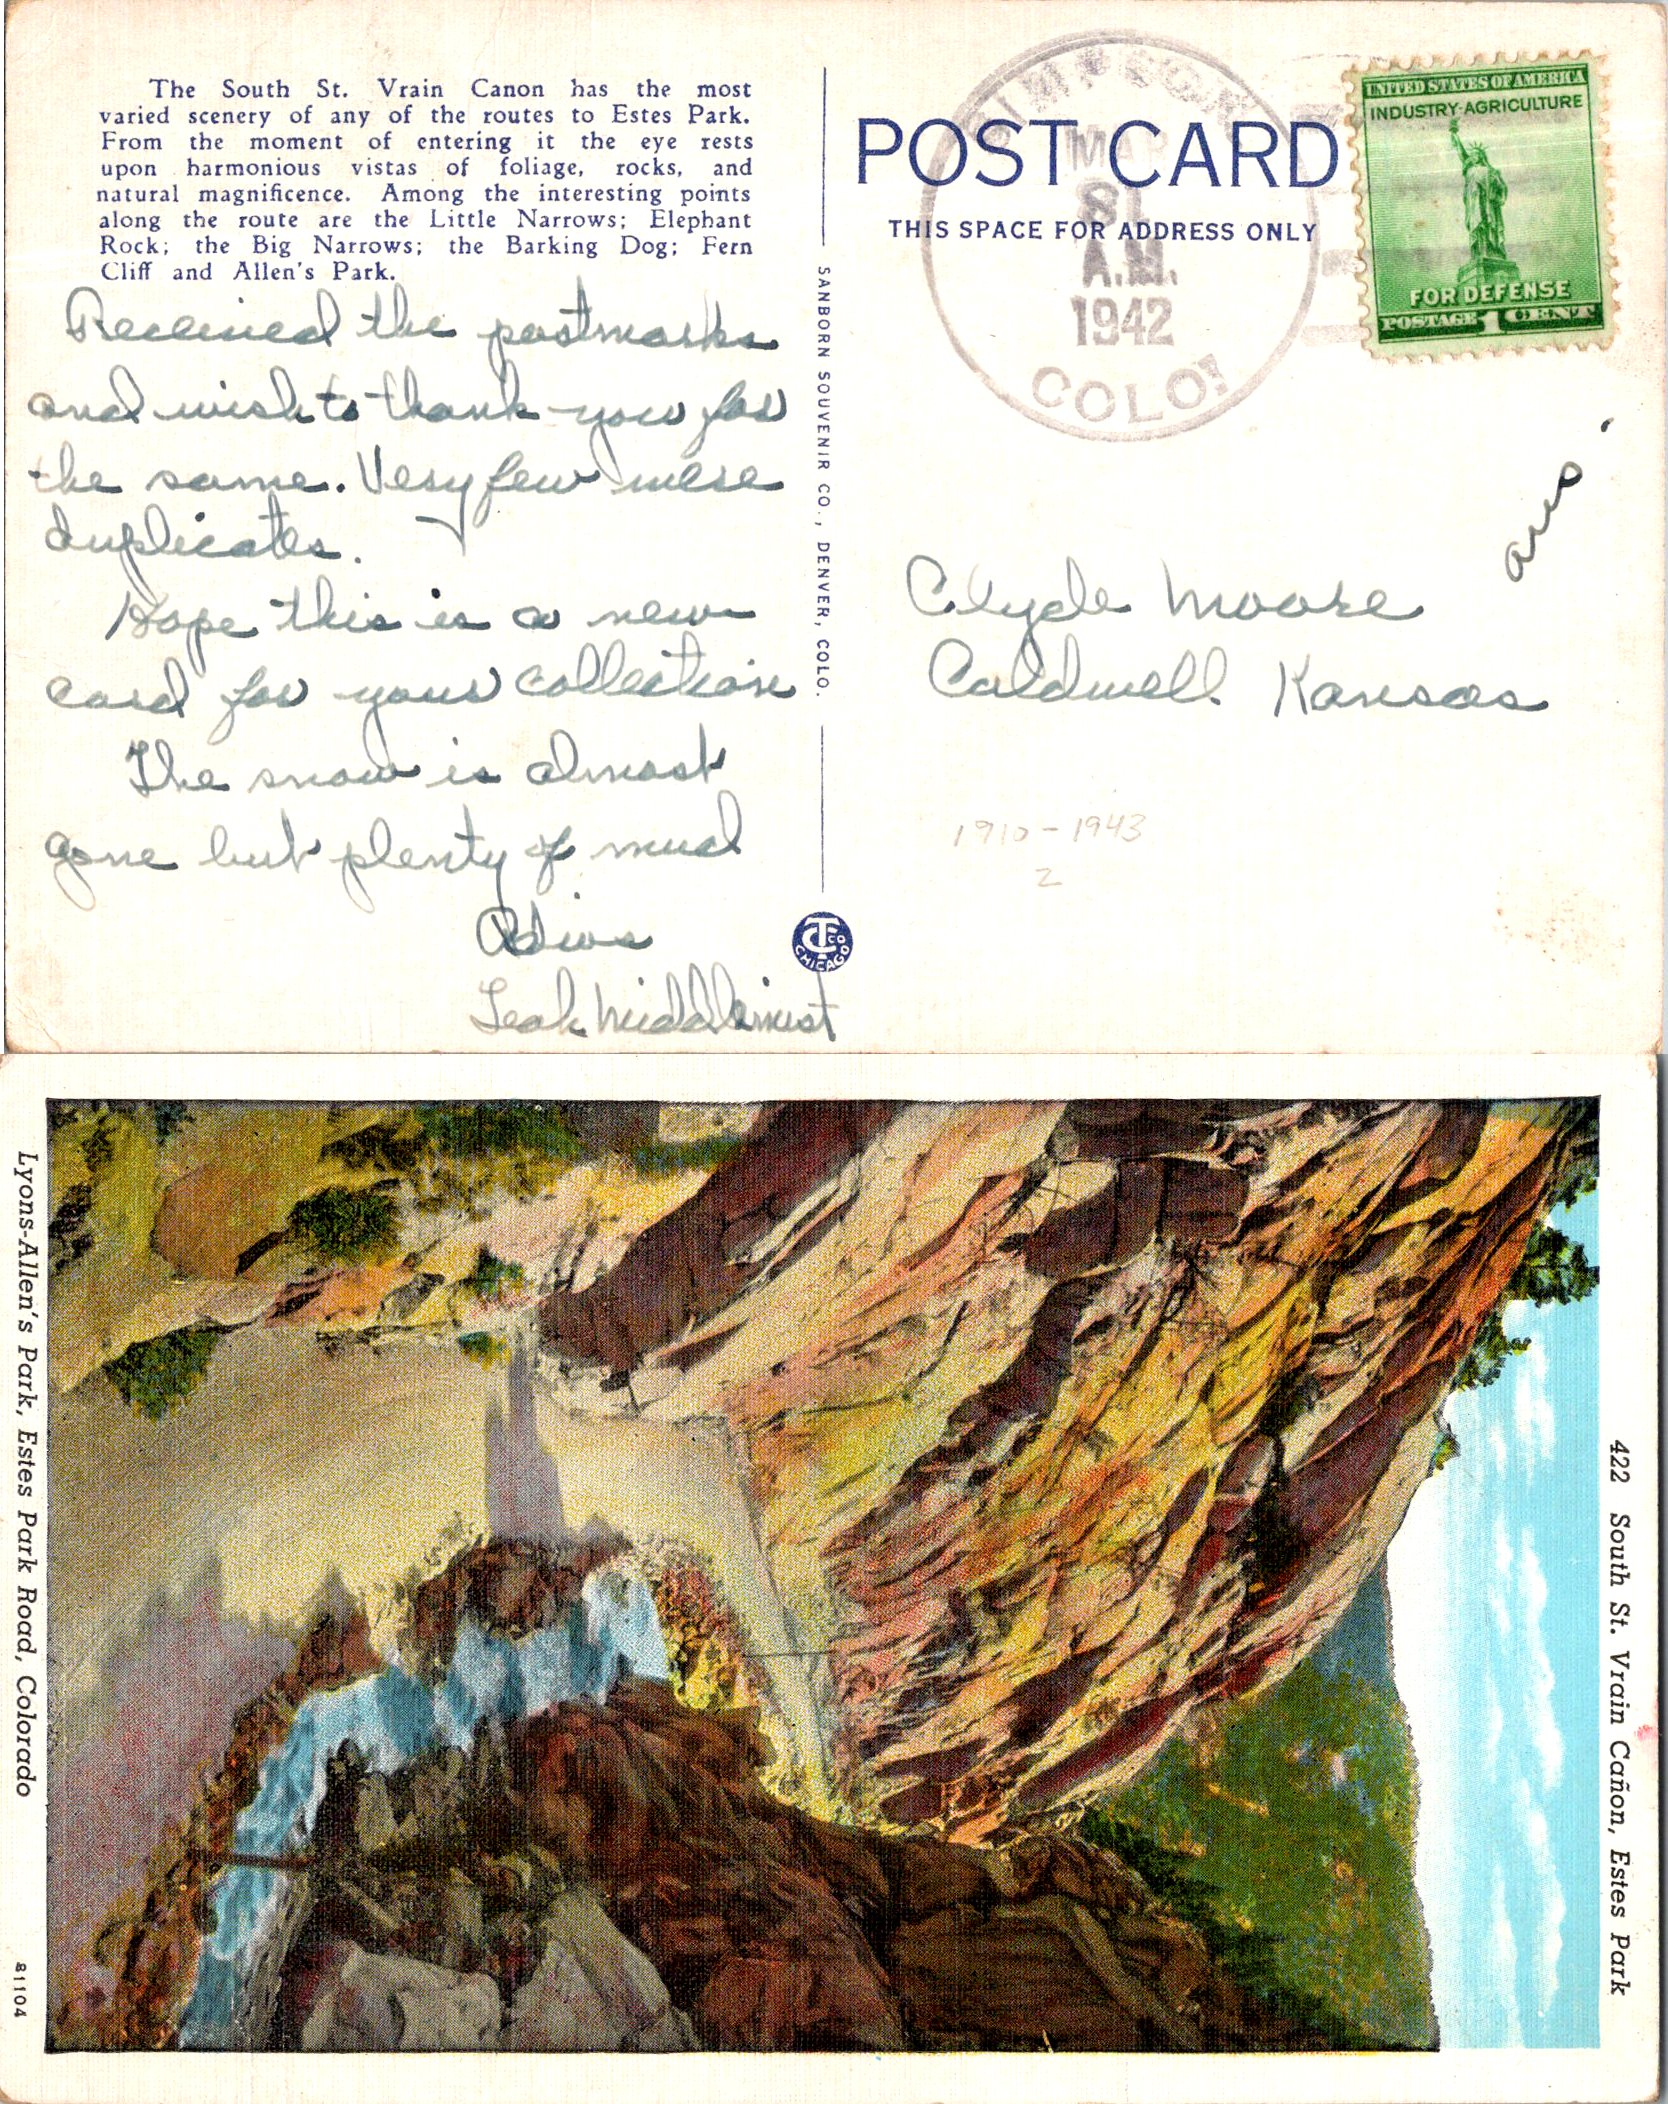 The South St. Vrain Canon has the most
varied scenery of any of the routes to Estes Park.
From the moment of entering it the eye rests
upon harmonious vistas of foliage, rocks, and
natural magnificence. Among the interesting points
along the route are the Little Narrows; Elephant
Rock; the Big Narrows; the Barking Dog; Fern
Cliff and Allen's Park.
Received the postmarks
and wish to thank you for
the same. Very few were
duplicates.
Hope this is a new
card for your collection
The snow is almost
gone but plenty of mud
Adios
Leah
SANBORN SOUVENIR CO., DENVER, COLO.
CT CO
CHICAGO
POST CARD
THIS SPACE FOR ADDRESS ONLY
A.M.
1942
COLO.
UNITED STATES OF AMERICA
INDUSTRY-AGRICULTURE
FOR DEFENSE
POSTAGE 1 CENT
ans
Clyde Moore
Caldwell Kansas
1910-1943
2
422 South St. Vrain Cañon, Estes Park
Lyons-Allen's Park, Estes Park Road, Colorado
81104